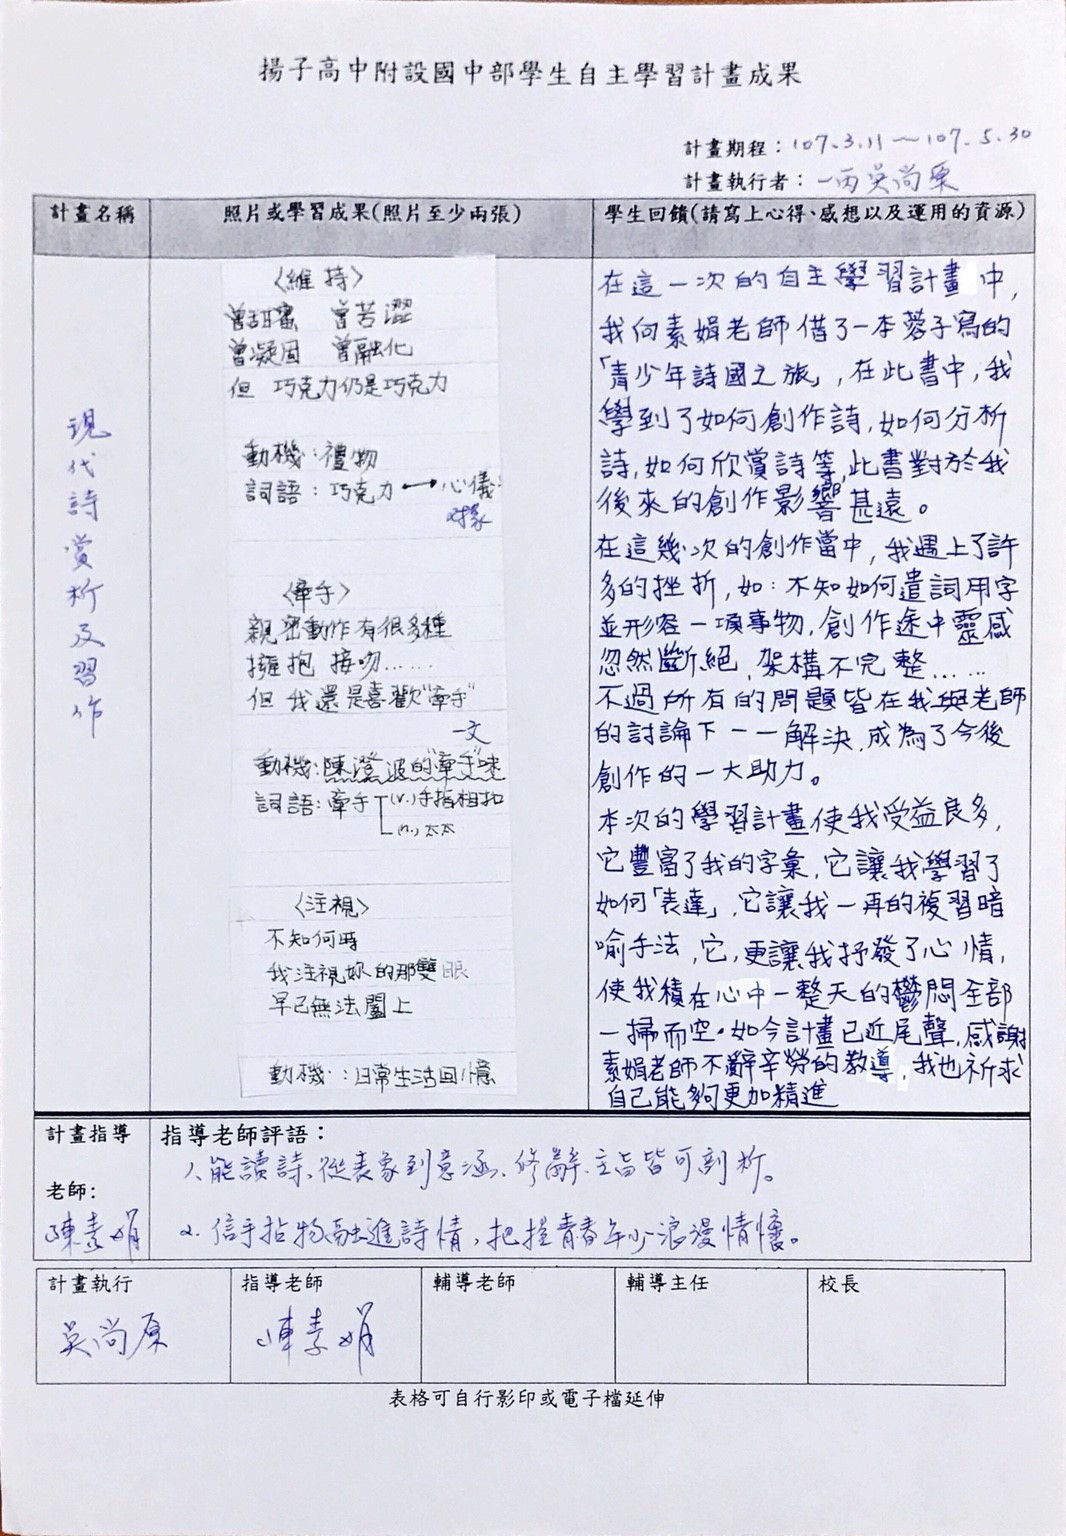 揚子高中附設國中部學生自主學習計畫成果
計畫期程：107.3.11～107.5.30
計畫執行者：一丙吳尚原
計畫名稱
照片或學習成果(照片至少兩張)
學生回饋(請寫上心得、感想以及運用的資源)
現代詩賞析及習作
〈維持〉
曾甜蜜　曾苦澀
曾凝固　曾融化
但 巧克力仍是巧克力
動機：禮物
詞語：巧克力 ←→心儀
对象
〈牽手〉
親密動作有很多種
擁抱 接吻……
但 我還是喜歡"牽手"
一文
動機：陳澄波的"牽手"
詞語：牽手 (v.)手指相扣
(n.)太太
〈注視〉
不知何時
我注視妳的那雙眼
早已無法闔上
動機：日常生活回憶
在這一次的自主學習計畫中，
我向素娟老師借了一本蓉子寫的
「青少年詩國之旅」，在此書中，我
學到了如何創作詩，如何分析
詩，如何欣賞詩等，此書對於我
後來的創作影響甚遠。
在這幾次的創作當中，我遇上了許
多的挫折，如：不知如何遣詞用字
並形容一項事物，創作途中靈感
忽然斷絕，架構不完整……
不過所有的問題皆在我與老師
的討論下一一解決，成為了今後
創作的一大助力。
本次的學習計畫使我受益良多，
它豐富了我的字彙，它讓我學習了
如何「表達」，它讓我一再的複習暗
喻手法，它，更讓我抒發了心情，
使我積在心中一整天的鬱悶全部
一掃而空。如今計畫已近尾聲，感謝
素娟老師不辭辛勞的教導，我也祈求
自己能夠更加精進
計畫指導
老師：
陳素娟
指導老師評語：
1.能讀詩，從表象到意涵、修辭、主旨皆可剖析。
2.信手拈物融進詩情，把握青春年少浪漫情懷。
計畫執行
指導老師
輔導老師
輔導主任
校長
吳尚原
陳素娟
表格可自行影印或電子檔延伸